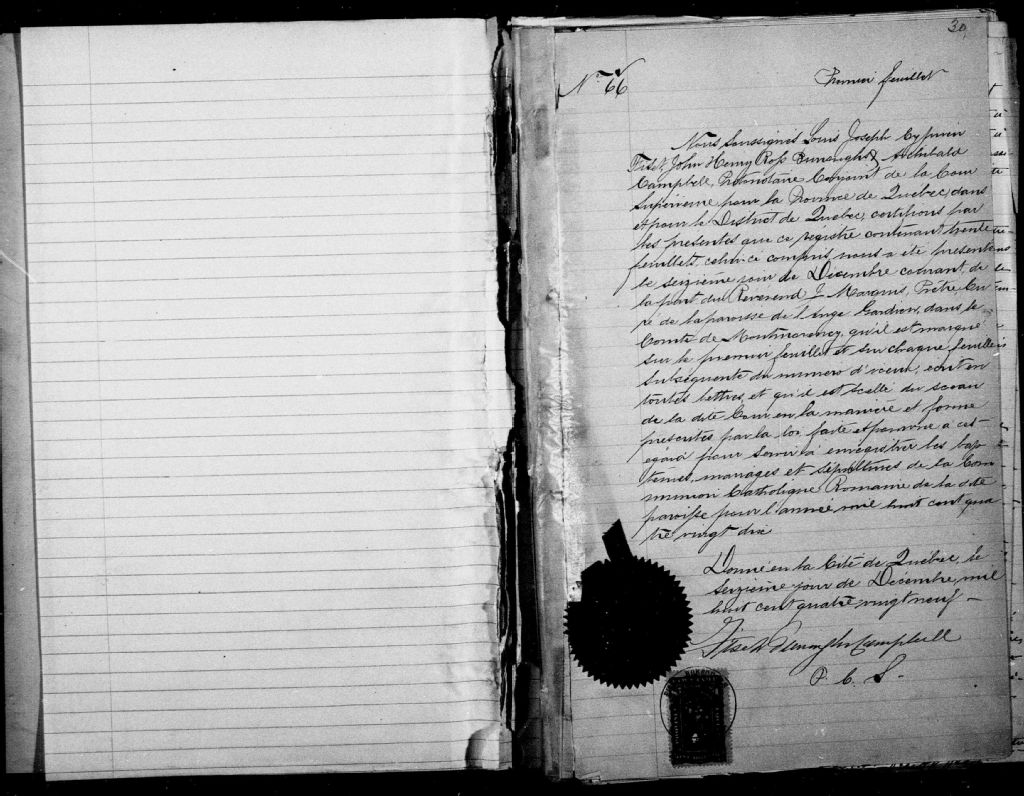 30
No 66
Premier feuillet
Nous Soussignés Louis Joseph Cyprien
Fiset, John Henry Ross Burroughs & Archibald
Campbell, Protonotaire Conjoint de la Cour
Supérieure pour la Province de Québec, dans
et pour le District de Québec, certifions par
les présentes que ce régistre contenant trente
feuillets, celui-ci compris nous a été présenté
le seizième jour de Décembre courant, de
la part du Révérend J. Maxime, Prêtre Cu
ré de la paroisse de l'Ange Gardien, dans le
Comté de Montmorency, qu'il est marqué
sur le premier feuillet et sur chaque feuillet
subséquente du numéro d'icelui, écrit en
toutes lettres, et qu'il est scellé du sceau
de la dite Cour en la manière et forme
prescrites par la loi faite et pourvue à cet
égard pour servir à enregistrer les bap
têmes, mariages et sépultures de la Com
munion Catholique Romaine de la dite
paroisse pour l'année mil huit cent qua
tre vingt dix
Donné en la Cité de Québec, le
seizième jour de Décembre, mil
huit cent quatre vingt neuf -
Fiset Burroughs Campbell
P. C. S.